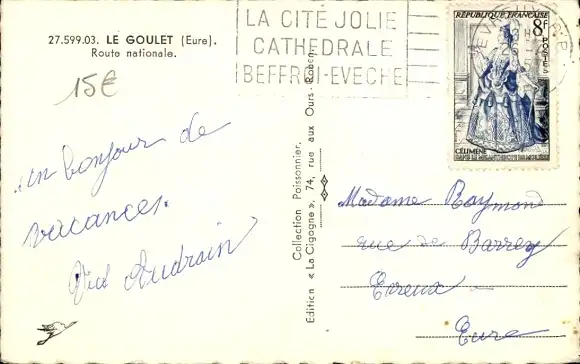 27.599.03. LE GOULET (Eure).
Route nationale.
15€
un bonjour de
vacances.
Audrain
LA CITÉ JOLIE
CATHEDRALE
BEFFROI-EVECHE
RÉPUBLIQUE FRANÇAISE
8F
POSTES
CÉLIMÈNE
DANS LE MISANTHROPE DE MOLIÈRE
Collection Poissonnier,
Edition « La Cigogne », 74, rue aux Ours - Rouen
Madame Raymond
rue de Barrey
Evreux
Eure